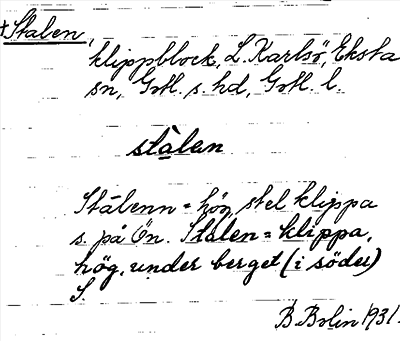 +Stalen,
klippblock, L. Karlsö, Eksta
sn, Gotl. s. hd, Gotl. l.
stàlan
Stàlenn = hög, stel klippa
s. på Ön. Stalen = klippa,
hög, under berget (i söder)
S.
B. Bolin 1931.